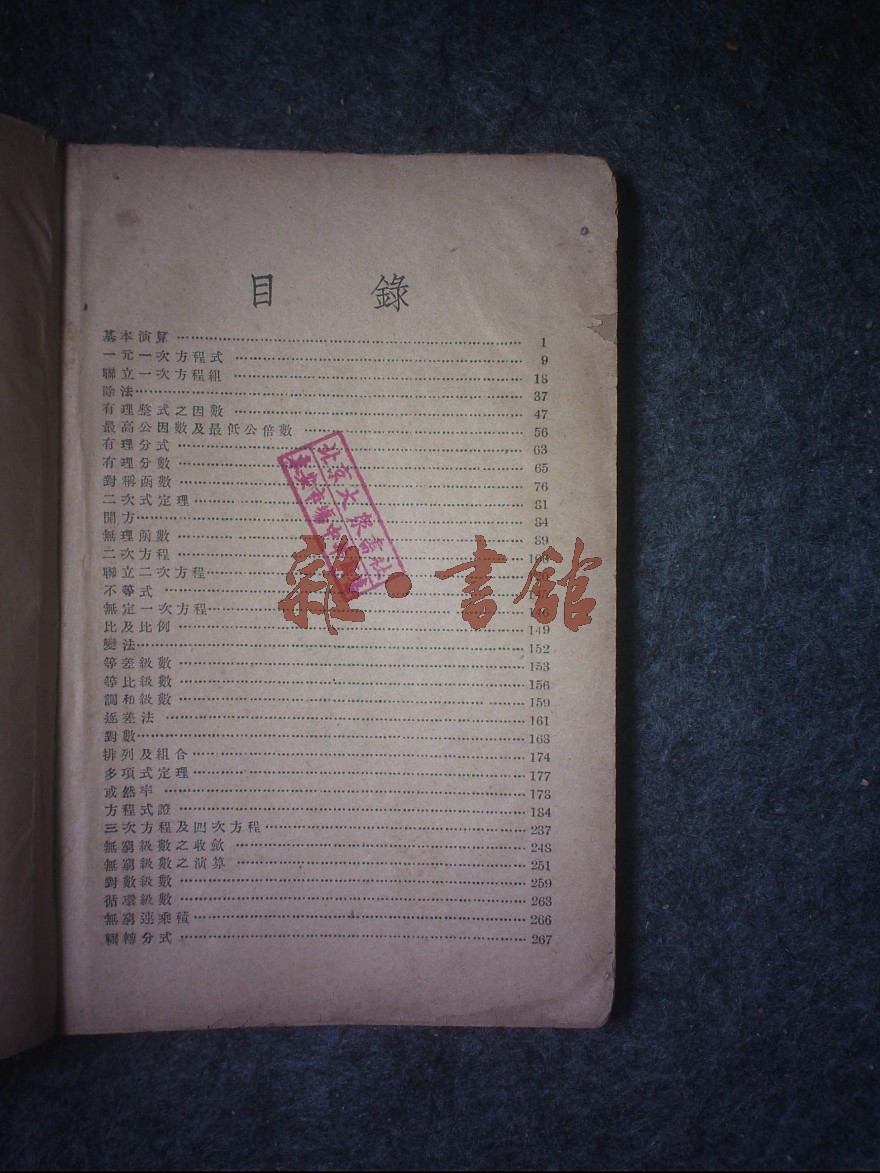 目錄
基本演算 1
一元一次方程式 9
聯立一次方程組 18
除法 37
有理整式之因數 47
最高公因數及最低公倍數 56
有理分式 63
有理分數 65
對稱函數 76
二次式定理 81
開方 84
無理函數 89
二次方程
聯立二次方程
不等式
無定一次方程
比及比例 149
變法 152
等差級數 153
等比級數 156
調和級數 159
逐差法 161
對數 163
排列及組合 174
多項式定理 177
或然率 178
方程式證 184
三次方程及四次方程 237
無窮級數之收斂 248
無窮級數之演算 251
對數級數 259
循環級數 263
無窮連乘積 266
輾轉分式 267
北京大衆書社
雜·書館